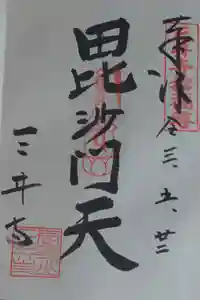 奉拝 令三、五、廿三
毘沙門天
三井寺